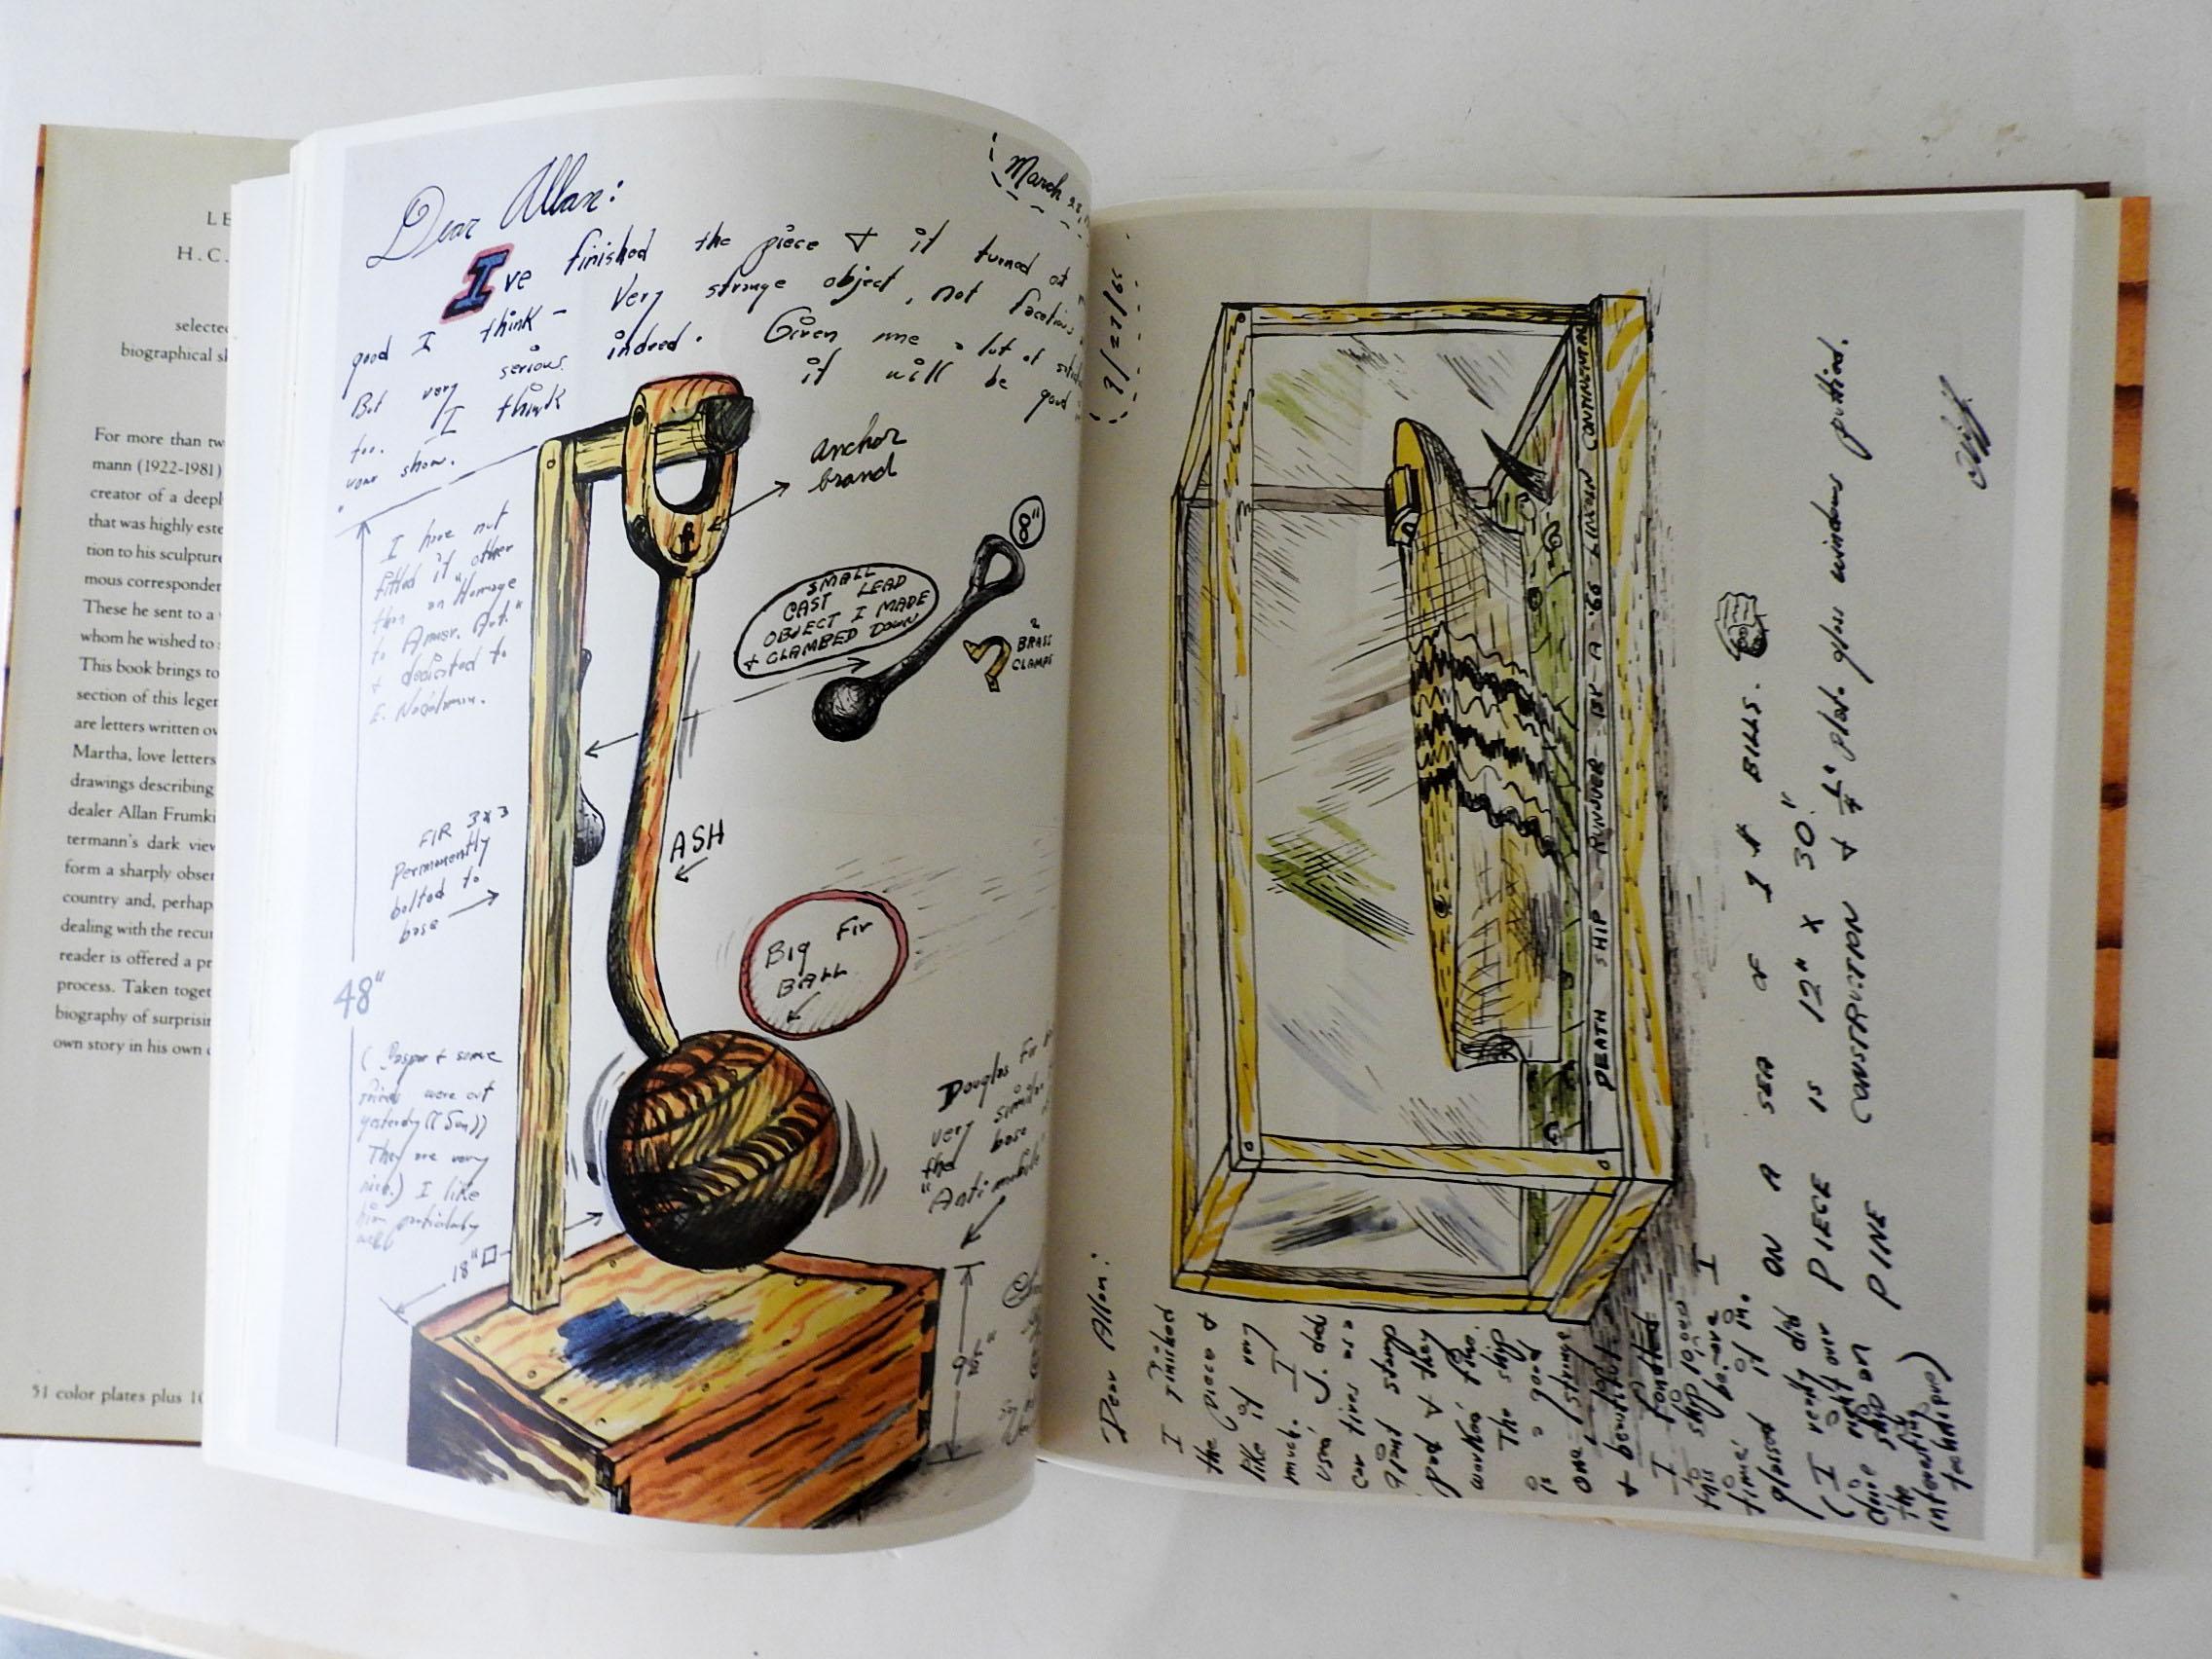 LE
H.C.
selected
biographical sk
For more than tw
mann (1922-1981)
creator of a deepl
that was highly este
tion to his sculpture
mous corresponden
These he sent to a
whom he wished to
This book brings to
section of this leger
are letters written ov
Martha, love letters
drawings describing
dealer Allan Frumki
termann's dark view
form a sharply obser
country and, perhap
dealing with the recur
reader is offered a pr
process. Taken toget
biography of surprisin
own story in his own
51 color plates plus 10
March 28,
Dear Allan:
I've finished the piece & it turned out
good I think - Very strange object, not facetious
But very serious indeed. Given me a lot of
too. I think it will be good
your show.
anchor
brand
I have not
titled it other
than an "Homage
to Amer. Art."
& dedicated to
E.
SMALL
CAST LEAD
OBJECT I MADE
& CLAMBED DOWN
8"
2
BRASS
CLAMPS
FIR 3x3
Permanently
bolted to
base
ASH
Big Fir
BALL
48"
( & some
friends were out
yesterday ((Sun))
They are very
nice.) I like
him particularly
well
18"
Douglas Fir
very similar
the base
"Antimobile"
9½"
3/27/66
Dear Allan:
I finished
the piece &
like it very
much. I
used J. died
car tires as a
giant stamp
pad & they
worked fine.
The ship
is a good
one, strange
& beautiful
I floated
this ship good
time before I
glassed it in.
(I really did
glue right over
the ship an
interesting
technique)
DEATH SHIP RUNOVER BY A '66 LINCOLN CONTINENTAL
ON A SEA OF 1 $ BILLS.
PIECE IS 12" X 30"
PINE CONSTRUCTION & ¼" plate glass windows puttied.
Cliff.